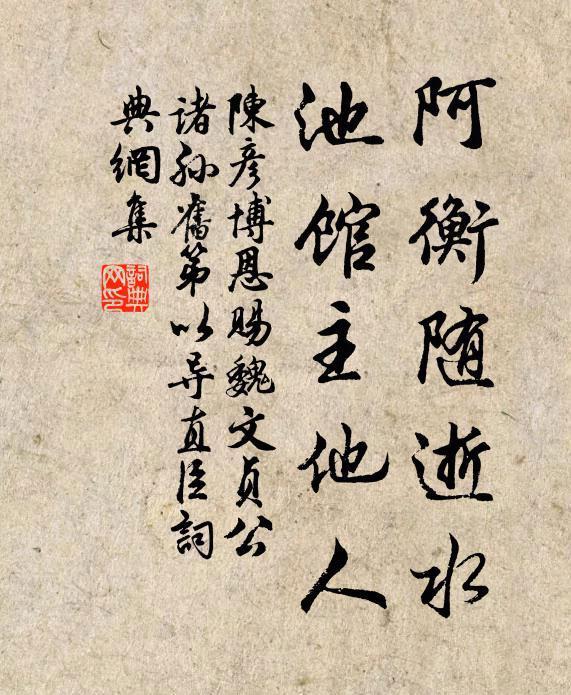 阿衡随逝水
池馆主他人
陳彦博恩賜魏文貞公
諸孙舊第以导直臣詞
典網集
詞典網印